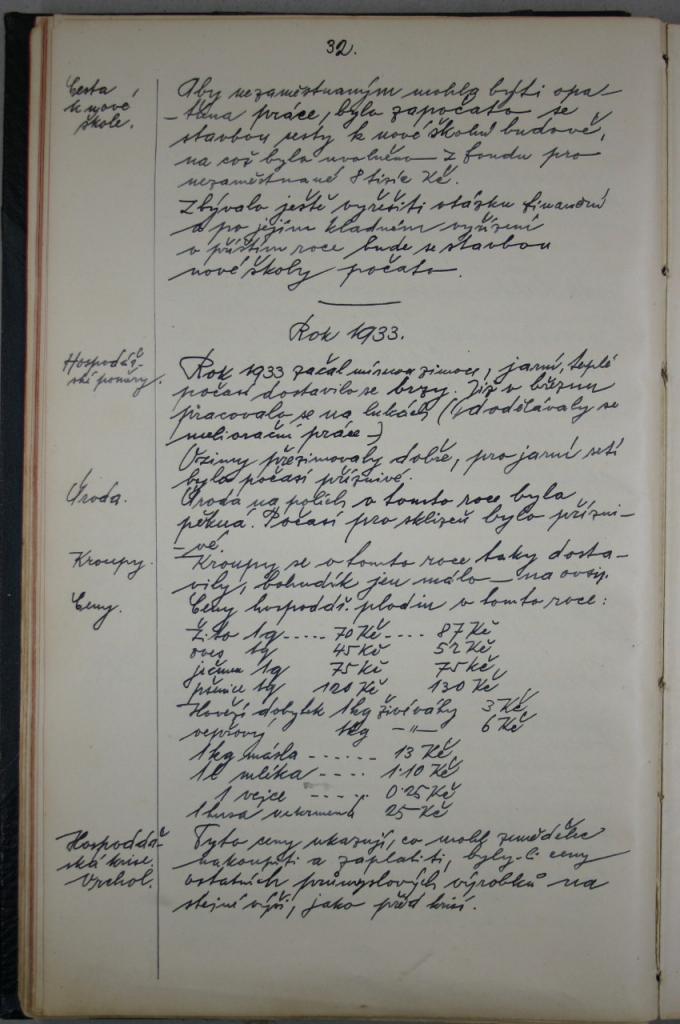 32.
Cesta
k nové
škole.
Aby nezaměstnaným mohla býti opa-
-třena práce, bylo započato se
stavbou cesty k nové školní budově,
na což bylo uvolněno z fondu pro
nezaměstnané 8 tisíc Kč.
Zbývalo ještě vyřešiti otázku finanční
a po jejím kladném vyřízení
v příštím roce bude se stavbou
nové školy počato.
Rok 1933.
Hospodář-
ské poměry.
Rok 1933 začal mírnou zimou, jarní, teplé
počasí dostavilo se brzy. Již v březnu
pracovalo se na lukách (dodělávaly se
meliorační práce-)
Ozimy přezimovaly dobře, pro jarní setí
bylo počasí příznivé.
Úroda.
Úroda na polích v tomto roce byla
pěkná. Počasí pro sklizeň bylo přízni-
-vé.
Kroupy.
Kroupy se v tomto roce taky dosta-
vily, bohudík jen málo - na ovsy.
Ceny.
Ceny hospodář. plodin v tomto roce:
žito 1q ..... 70 Kč .... 87 Kč
oves 1q 45 Kč 52 Kč
ječmen 1q 75 Kč 75 Kč
pšenice 1q 120 Kč 130 Kč
Hovězí dobytek 1 kg živé váhy 3 Kč
vepřový 1kg -"- 6 Kč
1 kg másla ...... 13 Kč
1 l mléka .... 1·10 Kč
1 vejce ..... 0·25 Kč
1 husa nekrmená 25 Kč
Hospodář-
ská krise.
Vrchol.
Tyto ceny ukazují, co mohl zemědělec
nakoupiti a zaplatiti, byly-li ceny
ostatních průmyslových výrobků na
stejné výši, jako před krisí.